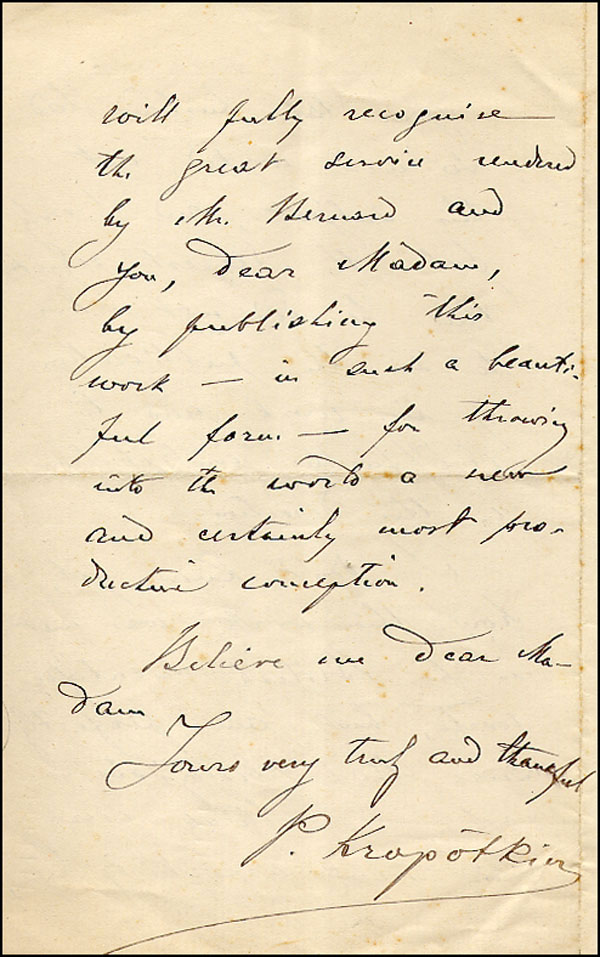 will fully recognise
the great service rendered
by Mr. Bernard and
you, dear Madam,
by publishing this
work — in such a beauti-
ful form — for throwing
into the world a new
and certainly most pro-
ductive conception.
Believe me dear Ma-
dam
Yours very truly and thankful
P. Kropótkin